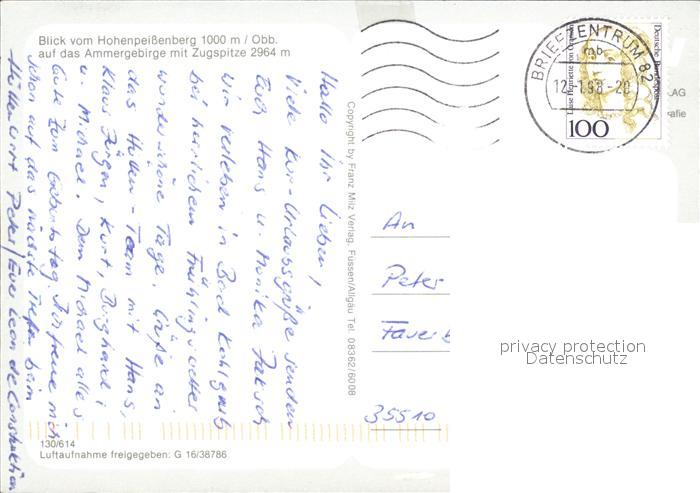 Blick vom Hohenpeißenberg 1000 m / Obb.
auf das Ammergebirge mit Zugspitze 2964 m
Hallo Ihr Lieben,
Viele Kur-Urlaubsgrüße senden
Euch Hans u. Monika
Wir verleben in Bad Kohlgrub
bei herrlichem Frühlingswetter
wunderschöne Tage. Grüße an
das Hütten-Team mit Hans,
Klaus, Jürgen, Kurt, Burghard
u. Michael. Dem Michael alles
Gute zum Geburtstag. Ich freue mich
schon auf das nächste Treffen beim
Hüttenwirt Peter/Eve
130/614
Luftaufnahme freigegeben: G 16/38786
Copyright by Franz Milz Verlag, Füssen/Allgäu Tel. 08362/6008
BRIEFZENTRUM 82
mb
Deutsche Bundespost
Luise Henriette von Oranien
100
AG
afie
An
Peter
Fauerb
35510
privacy protection
Datenschutz